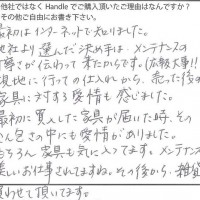 他社ではなく Handle でご購入頂いたご理由はなんですか?
その他ご自由にお書き下さい。
最初はインターネットで知りました。
他社より選んだ決め手は、メンテナンスの
丁寧さが伝わって来たからです。(広報大事!!)
現地に行っての仕入れから、売った後の
家具に対する愛情も感じました。
最初に買入した家具が届いた時、その
包さの中にも愛情がありました。
もちろん家具も気に入ってます。メンテナンス
美しいお仕事されてますね。その後から、雑貨
買わせて頂いてます。